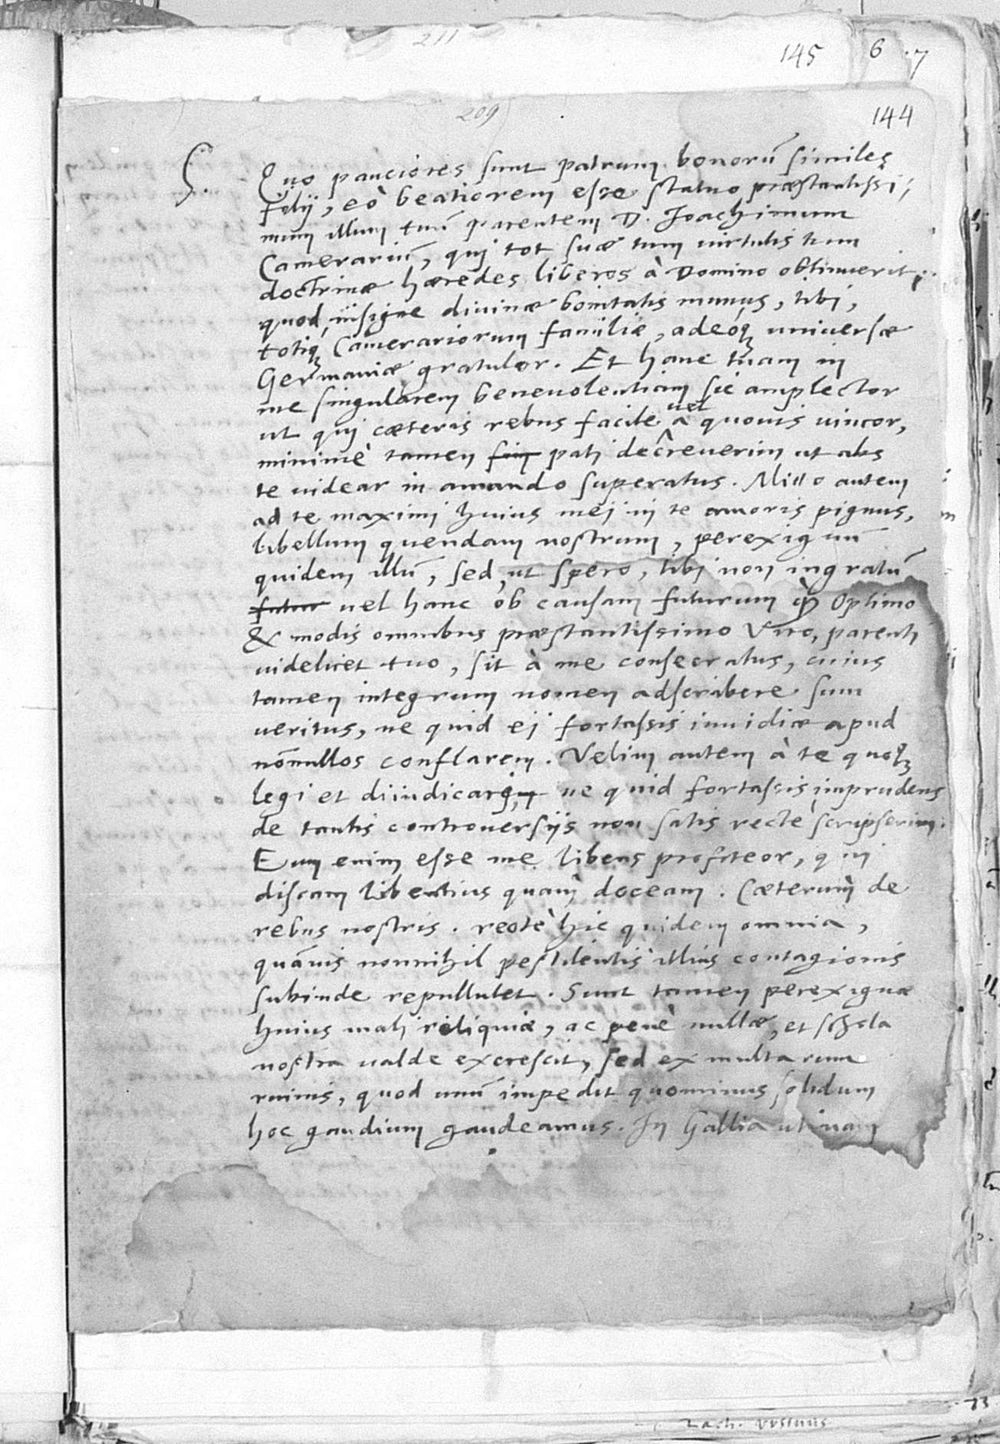 211
145 6 .7
209
144
S. Quo pauciores sunt patrum bonorū similes
filij, eò beatiorem esse statuo præstantissi,
mum illum tuū parentem D. Joachimum
Camerariū, qui tot suæ tum virtutis tum
doctrinæ hæredes liberos à Domino obtinuerit:
quod insigne divinæ bonitatis munus, tibi,
totiq; Camerariorum familiæ, adeoq; universæ
Germaniæ gratulor. Et hanc tuam in
me singularem benevolentiam sic amplector
ut qui cæteris rebus facile vel à quovis vincor,
minimè tamen pati decreverim ut abs
te videar in amando superatus. Mitto autem
ad te maximi huius mei in te amoris pignus,
libellum quendam nostrum, perexiguū
quidem illū, sed, ut spero, tibi non ingratū
futur vel hanc ob causam futurum q̃d Optimo
& modis omnibus præstantissimo Viro, parenti
videlicet tuo, sit à me consecratus, cuius
tamen integrum nomen adscribere sum
veritus, ne quid ei fortassis invidiæ apud
nōnullos conflarem. Velim autem à te quoq;
legi et diiudicari ne quid fortassis imprudens
de tantis controversijs non satis rectè scripserim.
Eum enim esse me libens profiteor, qui
discam libentius quam doceam. Cæterum de
rebus nostris. rectè hic quidem omnia,
quāvis nonnihil pestilentis illius contagionis
subinde repullulet. Sunt tamen perexiguæ
huius mali reliquiæ, ac penè nullæ, et schola
nostra valde excrescit, sed ex multarum
ruinis, quod unū impedit quominus solidum
hoc gaudium gaudeamus. In Gallia utinam
Zach. Ursinus